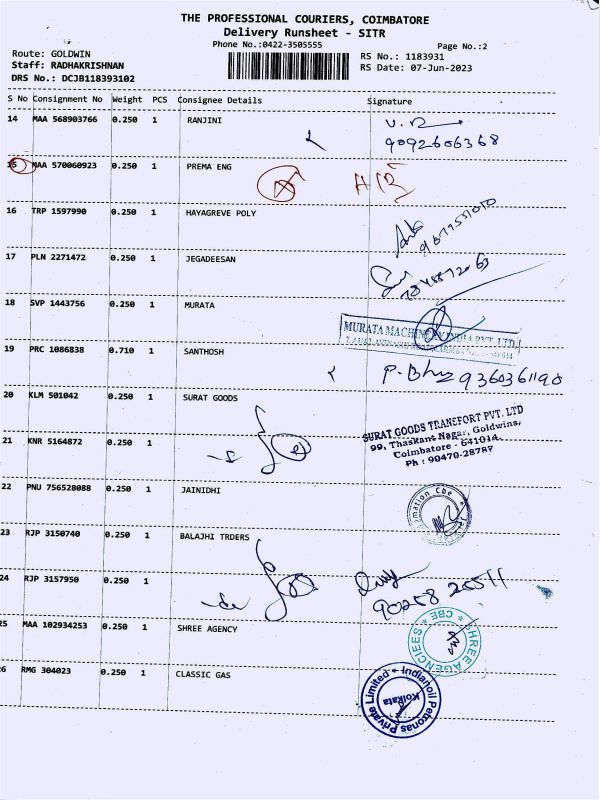 THE PROFESSIONAL COURIERS, COIMBATORE
Delivery Runsheet - SITR
Phone No.:0422-3505555
Page No.:2
Route: GOLDWIN
RS No.: 1183931
Staff: RADHAKRISHNAN
RS Date: 07-Jun-2023
DRS No.: DCJB118393102
S No Consignment No Weight PCS Consignee Details Signature
14 MAA 568903766 0.250 1 RANJINI
9092606368
15 MAA 570060923 0.250 1 PREMA ENG
16 TRP 1597990 0.250 1 HAYAGREVE POLY
17 PLN 2271472 0.250 1 JEGADEESAN
18 SVP 1443756 0.250 1 MURATA
MURATA MACHINERY INDIA PVT. LTD.
19 PRC 1086838 0.710 1 SANTHOSH
9360361190
20 KLM 501042 0.250 1 SURAT GOODS
SURAT GOODS TRANEFORT PVT. LTD
99, Thaskant Nagar, Goldwins,
Coimbatore - 641014.
Ph : 90470-28787
21 KNR 5164872 0.250 1
22 PNU 756528088 0.250 1 JAINIDHI
23 RJP 3150740 0.250 1 BALAJHI TRDERS
24 RJP 3157950 0.250 1
25 MAA 102934253 0.250 1 SHREE AGENCY
SHREE AGENCIEES ★ CBE ★
26 RMG 304023 0.250 1 CLASSIC GAS
Indianoil Petronas Private Limited
Kolkata